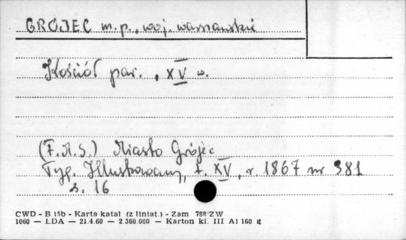 GRÓJEC m.p., woj. warszawskie
Kościół par., XV w.
(F.M.S.) Miasto Grójec
Tyg. Illustrowany, t. XV, r. 1867 nr 381
s. 16
CWD - B 15b - Karta katal (z liniat.) - Zam 788/ZW
1060 — LDA — 21.4.60 — 2.360.000 — Karton kl. III A1 160 g